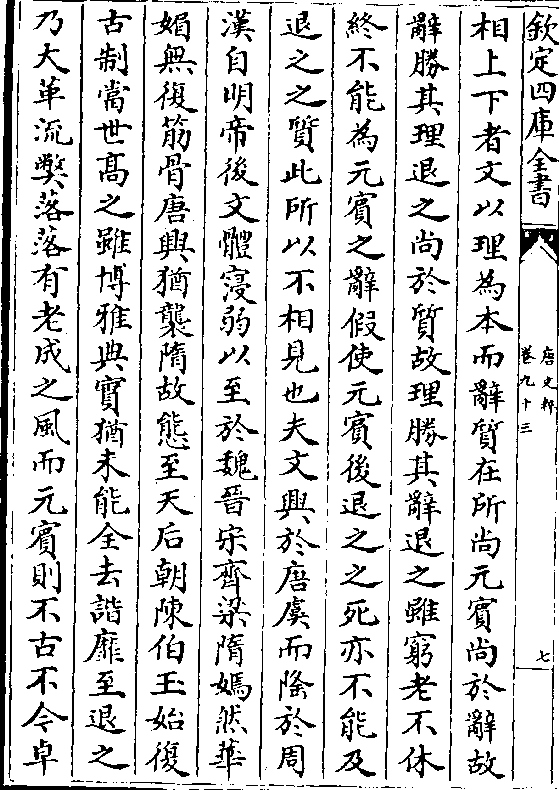 欽定四庫全書
唐文粹
卷九十三
七
相上下者文以理為本而辭質在所尚元賓尚於辭故
辭勝其理退之尚於質故理勝其辭退之雖窮老不休
終不能為元賓之辭假使元賓後退之之死亦不能及
退之之質此所以不相見也夫文興於唐虞而隆於周
漢自明帝後文體寖弱以至於魏晉宋齊梁隋嫣然華
媚無復筋骨唐興猶襲隋故態至天后朝陳伯玉始復
古制當世髙之雖博雅典實猶未能全去諧靡至退之
乃大革流弊落落有老成之風而元賓則不古不今卓